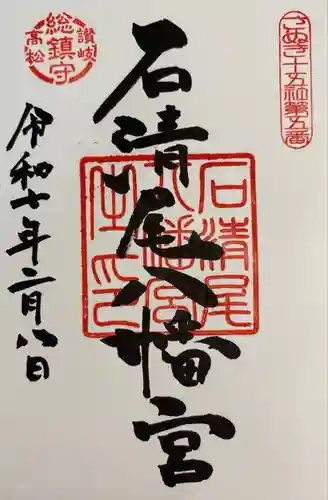 さぬき十五社第五番
石清尾八幡宮
石清尾
八幡宮
讃岐
総鎮守
高松
令和七年二月八日